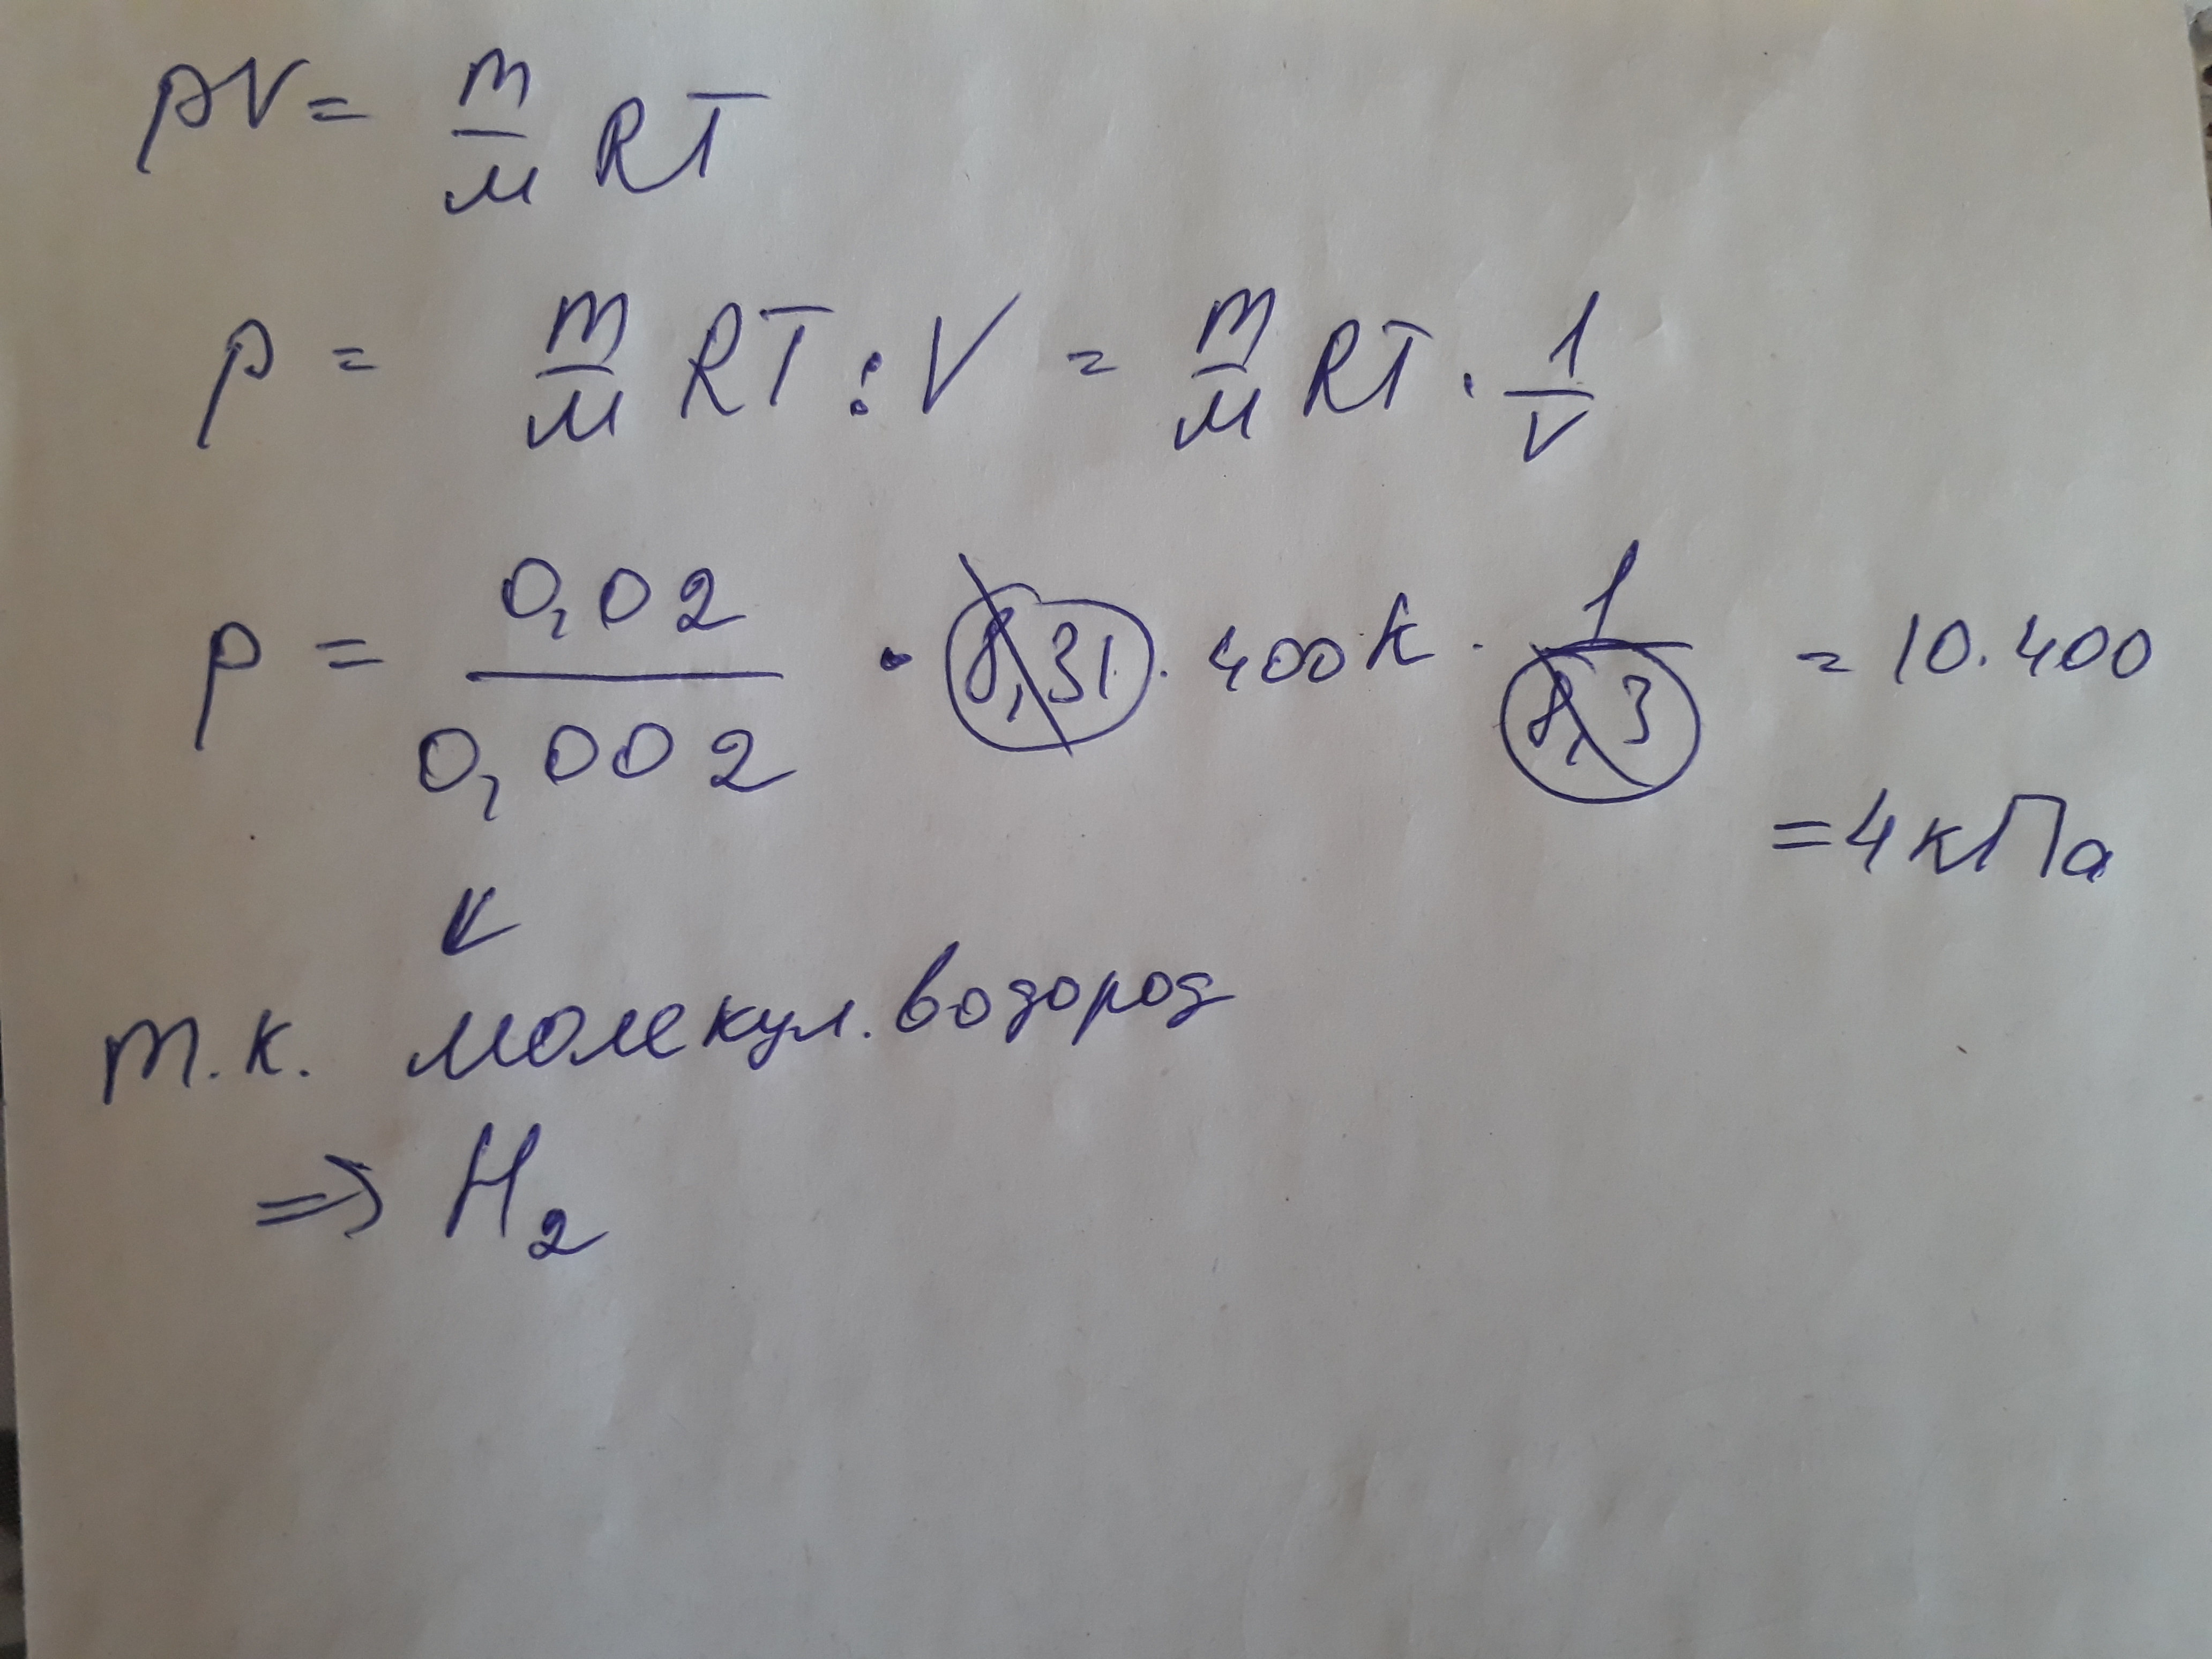 pV = m/M RT
p = m/M RT : V = m/M RT · 1/V
p = 0,02/0,002 · 8,31 · 400 K · 1/8,3 = 10 . 400
= 4 кПа
т.к. молекул. водород
=> H₂